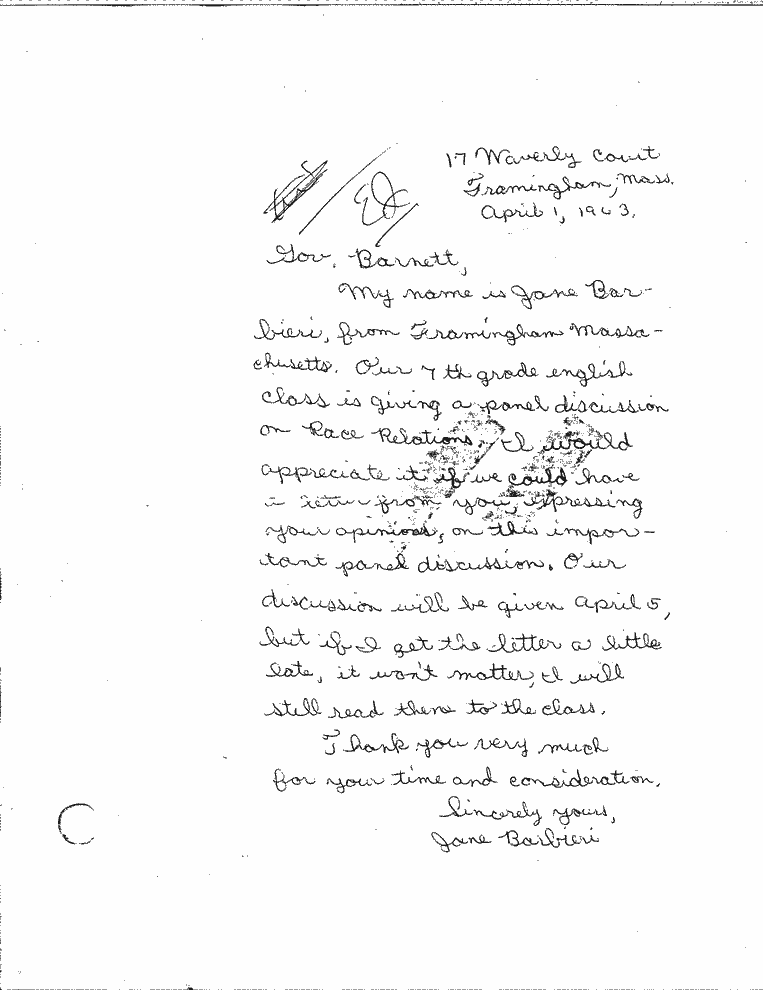 17 Waverly Court
Framingham, Mass.
April 1, 1963.
Gov. Barnett,
My name is Jane Bar-
bieri, from Framingham Massa-
chusetts. Our 7th grade english
class is giving a panel discussion
on Race Relations. I would
appreciate it if we could have
a letter from you, expressing
your opinions, on this impor-
tant panel discussion. Our
discussion will be given April 5,
but if I get the letter a little
late, it won't matter, I will
still read them to the class.
Thank you very much
for your time and consideration.
Sincerely yours,
Jane Barbieri